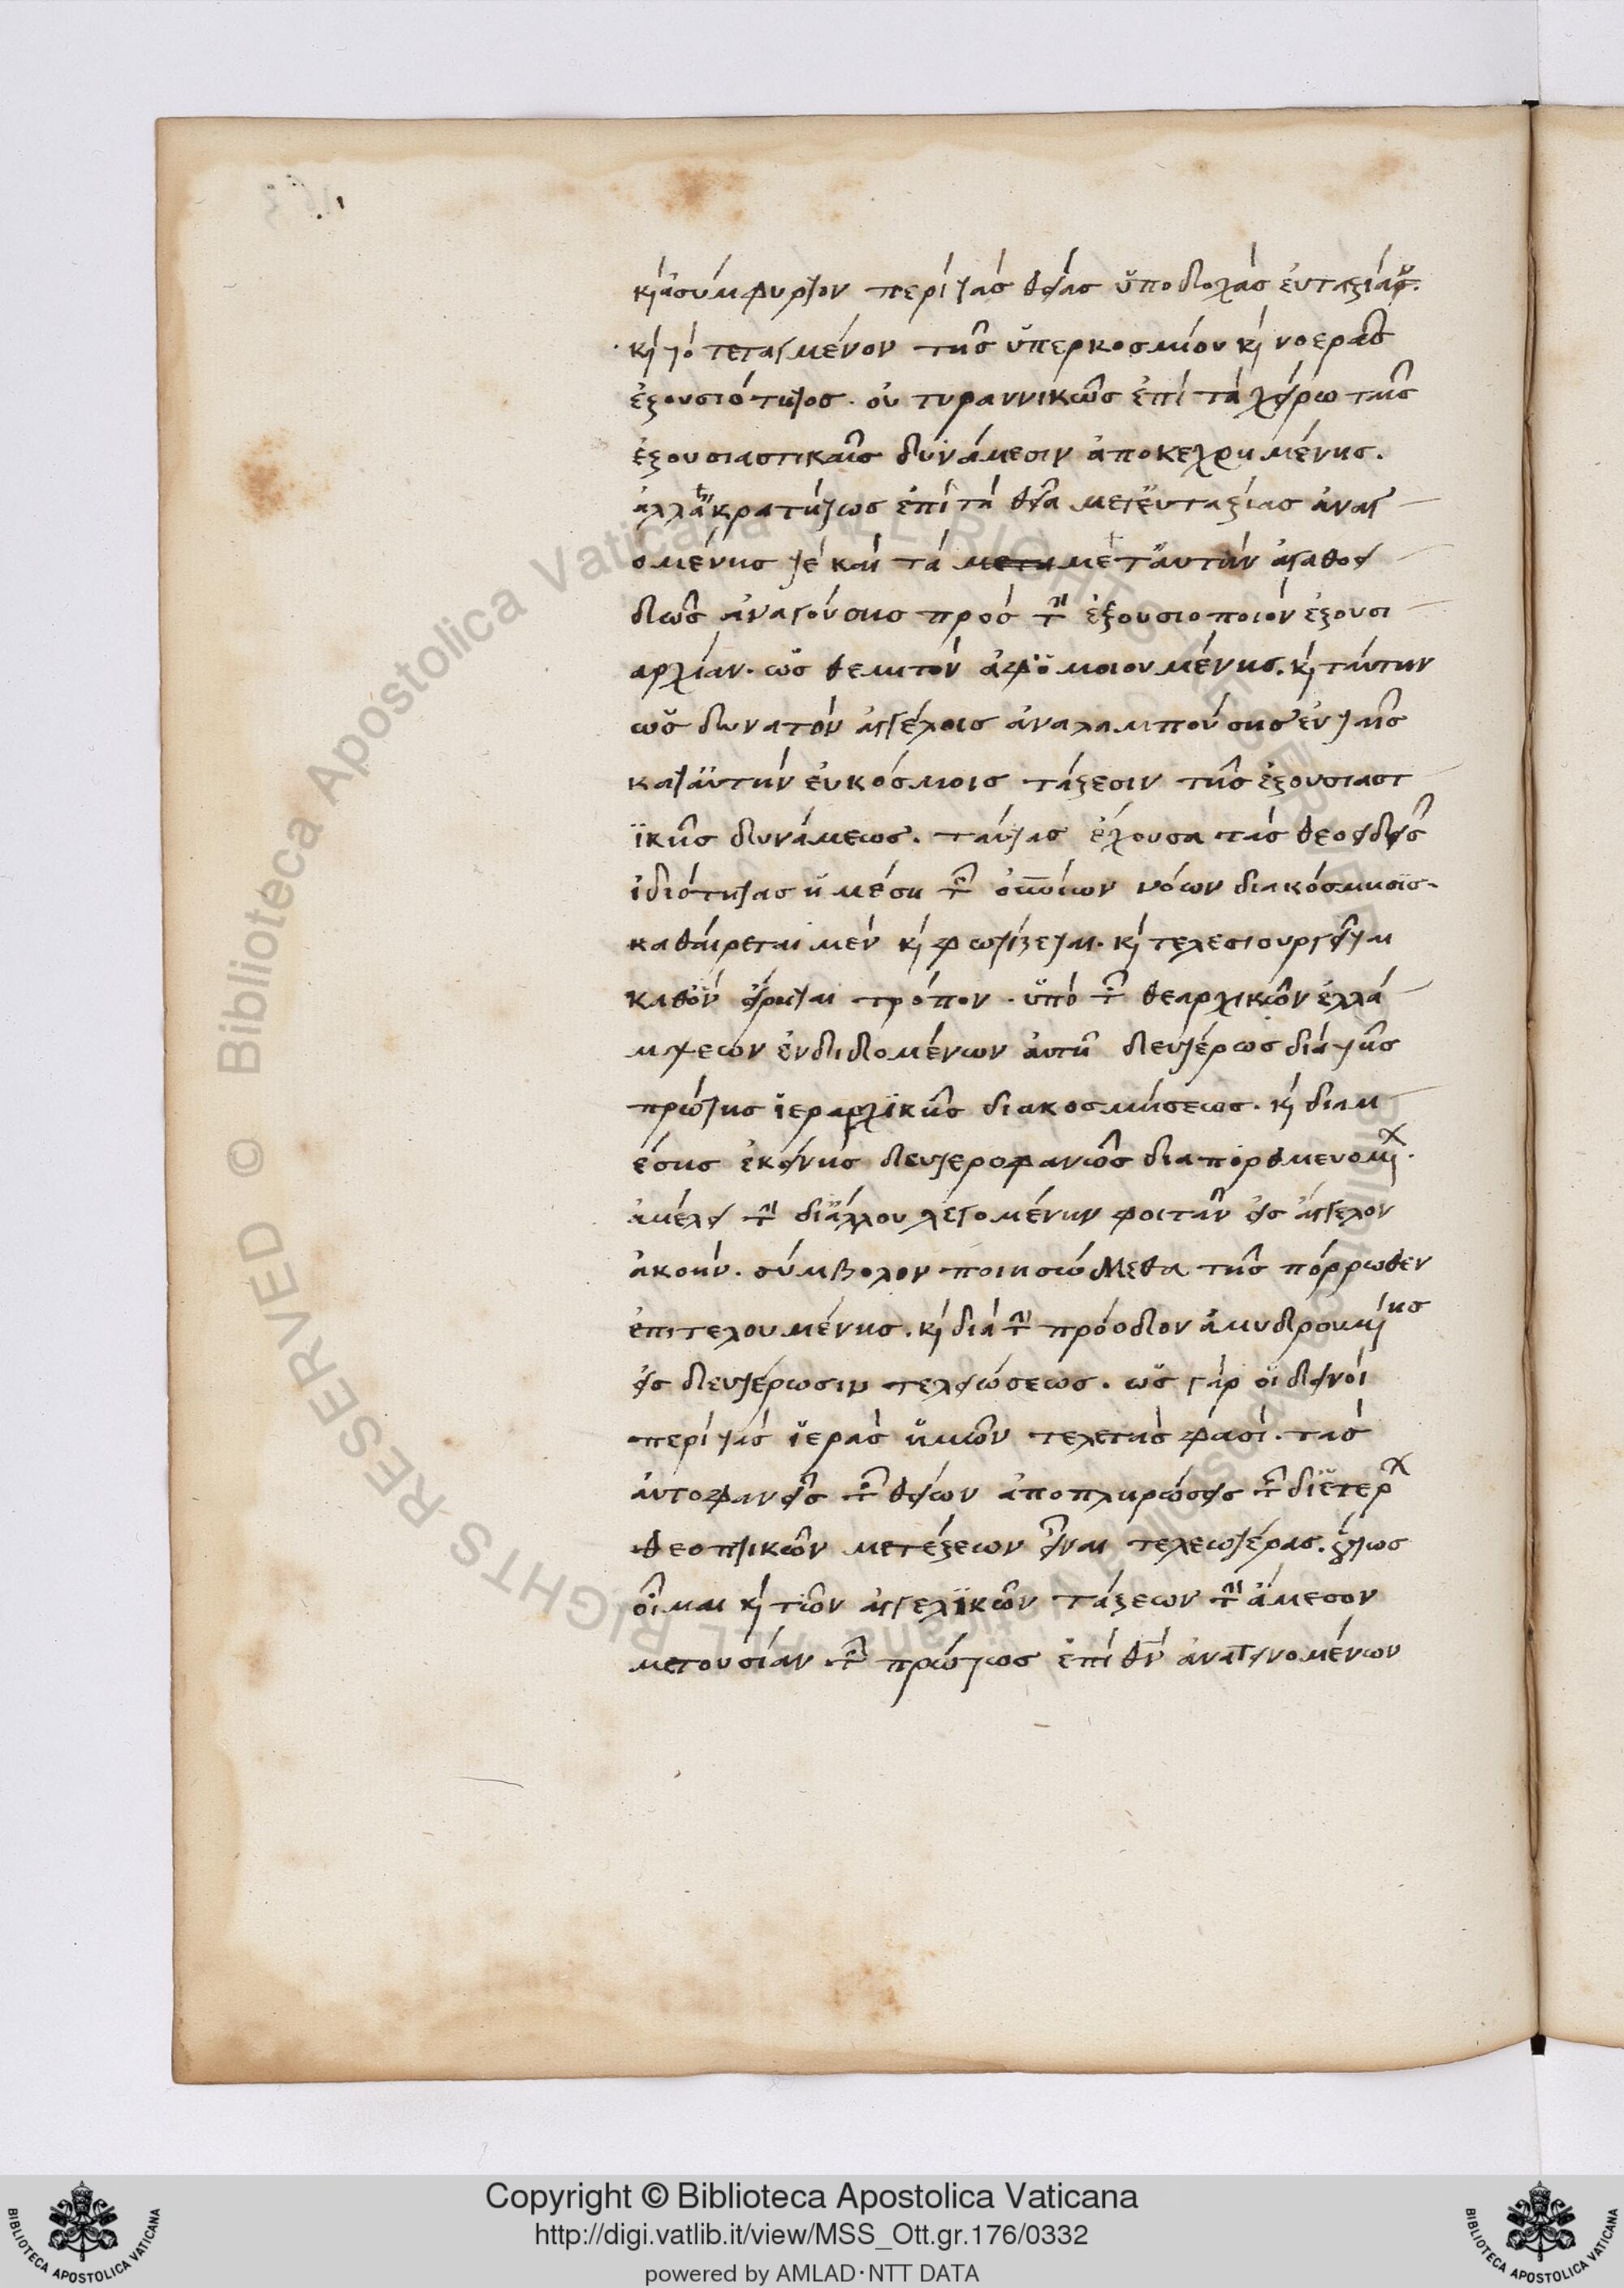 κὶ ἀσύμφυρτον περὶ τὰς θείας ὑποδοχὰς ἐυταξίαν.
κὶ τὸ τεταγμένον τῆς ὑπερκοσμίου κὶ νοερᾶς
ἐξουσιότητος. οὐ τυραννικῶς ἐπὶ τὰ χείρω ταῖς
ἐξουσιαστικαῖς δυνάμεσιν ἀποκεχρημένης.
ἀλλ' ἀκρατήτως ἐπὶ τὰ θεῖα μετ' ἐυταξίας ἀναγ
ομένης τὲ καὶ τὰ μετ' ἀυτὴν ἀγαθοει
δῶς ἀναγούσης πρὸς τὴν ἐξουσιοποιὸν ἐξουσι
αρχίαν. ὡς θεμιτὸν ἀφομοιουμένης. κὶ ταύτην
ὡς δυνατὸν ἀγγέλοις ἀναλαμπούσης ἐν ταῖς
κατ' ἀυτὴν ἐυκόσμοις τάξεσιν τῆς ἐξουσιαστ
ικῆς δυνάμεως. ταύτας ἔχουσα τὰς θεοειδεῖς
ἰδιότητας ἡ μέση τῶν οὐνίων νόων διακόσμησις.
καθαίρεται μὲν κὶ φωτίζεται. κὶ τελεσιουργεῖται
καθ' ὃν εἴρηται τρόπον. ὑπὸ τῶν θεαρχικῶν ἐλλά
μψεων ἐνδιδομένων ἀυτῇ δευτέρως διὰ τῆς
πρώτης ἱεραρχικῆς διακοσμήσεως. κὶ δια μ
έσης ἐκείνης δευτεροφανῶς διαπορθμευομ.
ἀμέλει τὴν δι' ἄλλου λεγομένην φοιτᾶν εἰς ἄγγελον
ἀκοήν. σύμβολον ποιησώμεθα τῆς πόρρωθεν
ἐπιτελουμένης. κὶ διὰ τὴν πρόοδον ἀμυδρουμένης
εἰς δευτέρωσιν τελειώσεως. ὡς γὰρ οἱ δεινοὶ
περὶ τὰς ἱερὰς ἡμῶν τελετάς φασι. τὰς
ἀυτοφανεῖς τῶν θείων ἀποπληρώσεις τῶν δι' ἑτέρ
θεοπτικῶν μετέξεων εἶναι τελεωτέρας. οὕτως
οἶμαι κὶ τῶν ἀγγελικῶν τάξεων τὴν ἄμεσον
μετουσίαν τῶν πρώτως ἐπὶ θν ἀνατεινομένων
Copyright © Biblioteca Apostolica Vaticana
http://digi.vatlib.it/view/MSS_Ott.gr.176/0332
powered by AMLAD·NTT DATA